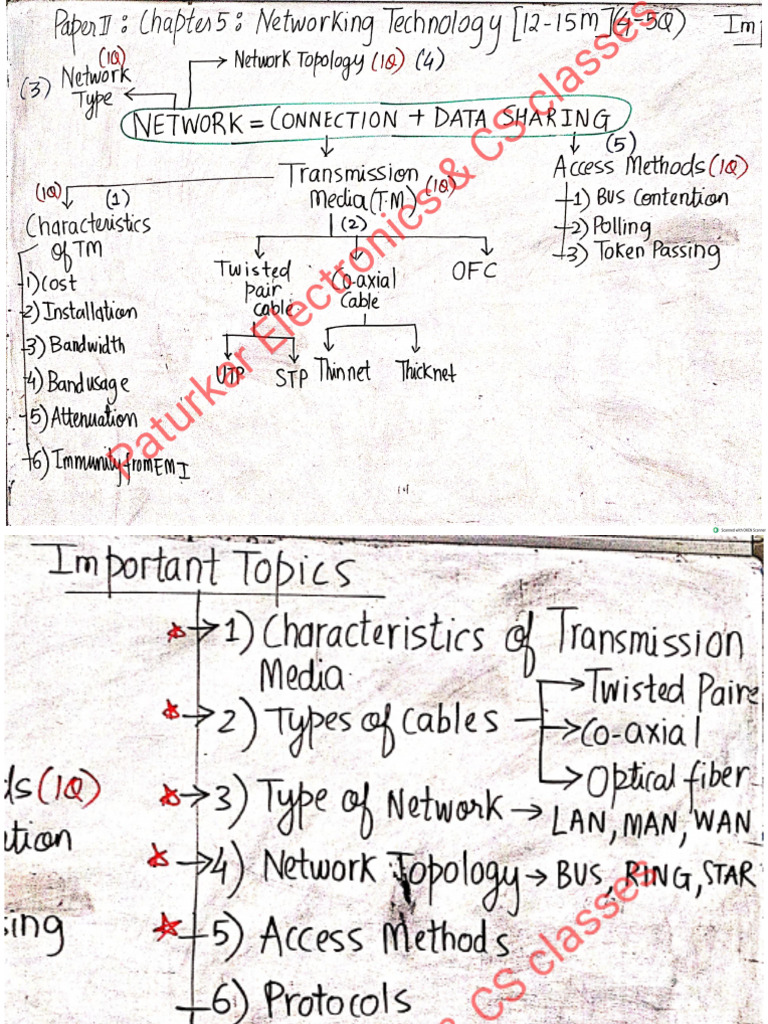 Paper II : Chapter 5 : Networking Technology [12-15m] (4-5Q) Im
(1Q)
(3) Network Type
Network Topology (1Q) (4)
NETWORK = CONNECTION + DATA SHARING
Transmission
Media (T.M) (1Q)
(2)
(5)
Access Methods (1Q)
1) BUS Contention
2) Polling
3) Token Passing
(1Q) (1)
Characteristics
of TM
1) Cost
2) Installation
3) Bandwidth
4) Band usage
5) Attenuation
6) Immunity from EMI
Twisted
pair
cable
Co-axial
Cable
OFC
UTP
STP
Thin net
Thick net
Paturkar Electronics & CS classes
Scanned with OKEN Scanner
Important Topics
1) Characteristics of Transmission
Media.
2) Types of Cables
Twisted Paire
Co-axial
Optical fiber
3) Type of Network → LAN, MAN, WAN
4) Network Topology → BUS, RING, STAR
5) Access Methods
6) Protocols
ds (1Q)
tion
sing
& CS classes